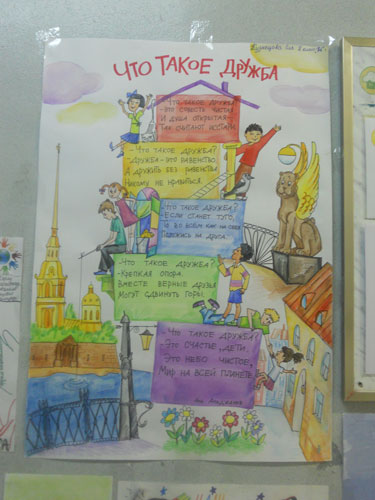 ЧТО ТАКОЕ ДРУЖБА
-Что такое дружба?
-Это совесть чистая
И душа открытая-
Так считают
-Что такое дружба?
Дружба-это равенство,
А дружить без равенства
Никому не нравится.
-Что такое дружба?
Если станет туго,
То во всём как на себя
Положись на друга.
-Что такое дружба?
-Крепкая опора.
Вместе верные друзья
Могут сдвинуть горы.
-Что такое дружба?
-Это счастье, дети,
Это небо чистое,
Мир на всей планете.